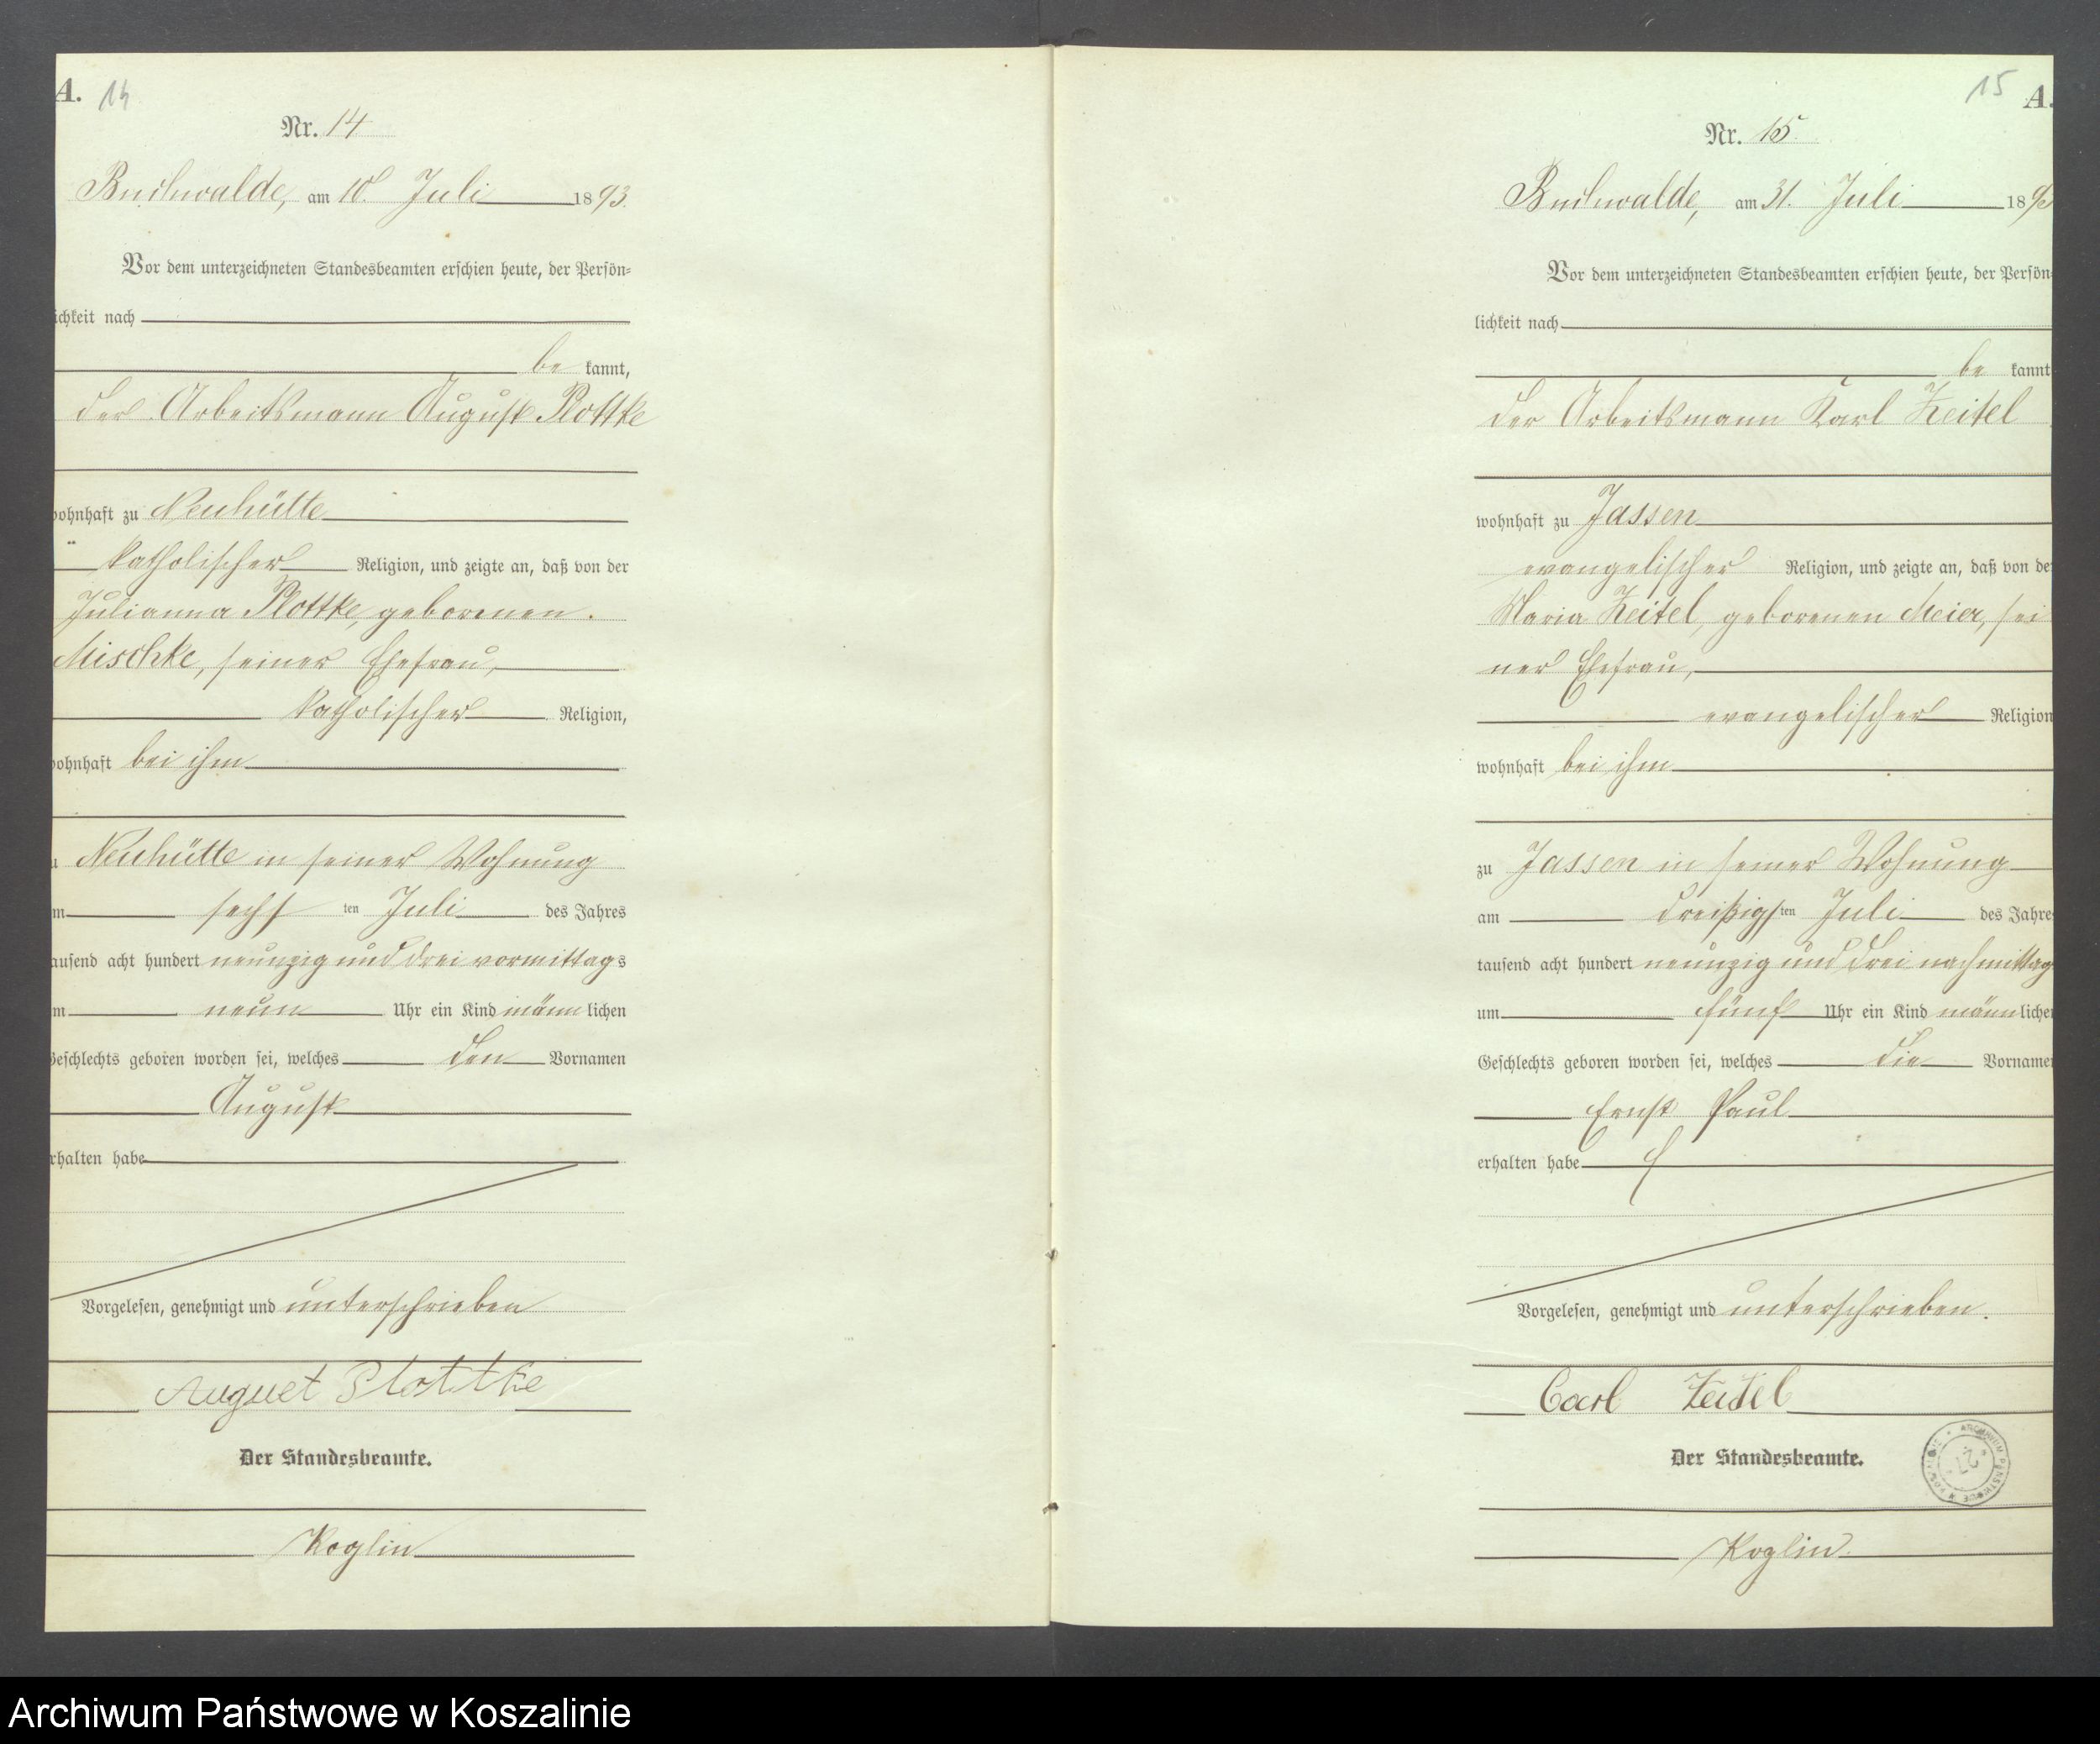 A. 14
Nr. 14
Buchwalde, am 10. Juli 1893.
Vor dem unterzeichneten Standesbeamten erschien heute, der Persön=
ichkeit nach
be kannt,
der Arbeitsmann August Plottke
wohnhaft zu Neuhütte
katholischer Religion, und zeigte an, daß von der
Julianna Plottke, geborenen
Mischke, seiner Ehefrau,
katholischer Religion,
wohnhaft bei ihm
u Neuhütte in seiner Wohnung
m sechs ten Juli des Jahres
ausend acht hundert neunzig und drei vormittags
m neun Uhr ein Kind männ lichen
Geschlechts geboren worden sei, welches den Vornamen
August
rhalten habe
Vorgelesen, genehmigt und unterschrieben
August Plottke
Der Standesbeamte.
Koglin
15 A.
Nr. 15.
Buchwalde, am 31. Juli 189
Vor dem unterzeichneten Standesbeamten erschien heute, der Persön
lichkeit nach
be kannt
der Arbeitsmann Karl Zeitel
wohnhaft zu Jassen
evangelischer Religion, und zeigte an, daß von der
Maria Zeitel, geborenen Meier, sei
ner Ehefrau,
evangelischer Religion
wohnhaft bei ihm
zu Jassen in seiner Wohnung
am dreißigs ten Juli des Jahres
tausend acht hundert neunzig und drei nachmittag
um fünf Uhr ein Kind männ lichen
Geschlechts geboren worden sei, welches die Vornamen
Ernst Paul
erhalten habe
Vorgelesen, genehmigt und unterschrieben.
Carl Zeitel
Der Standesbeamte.
Koglin.
Archiwum Państwowe w Koszalinie